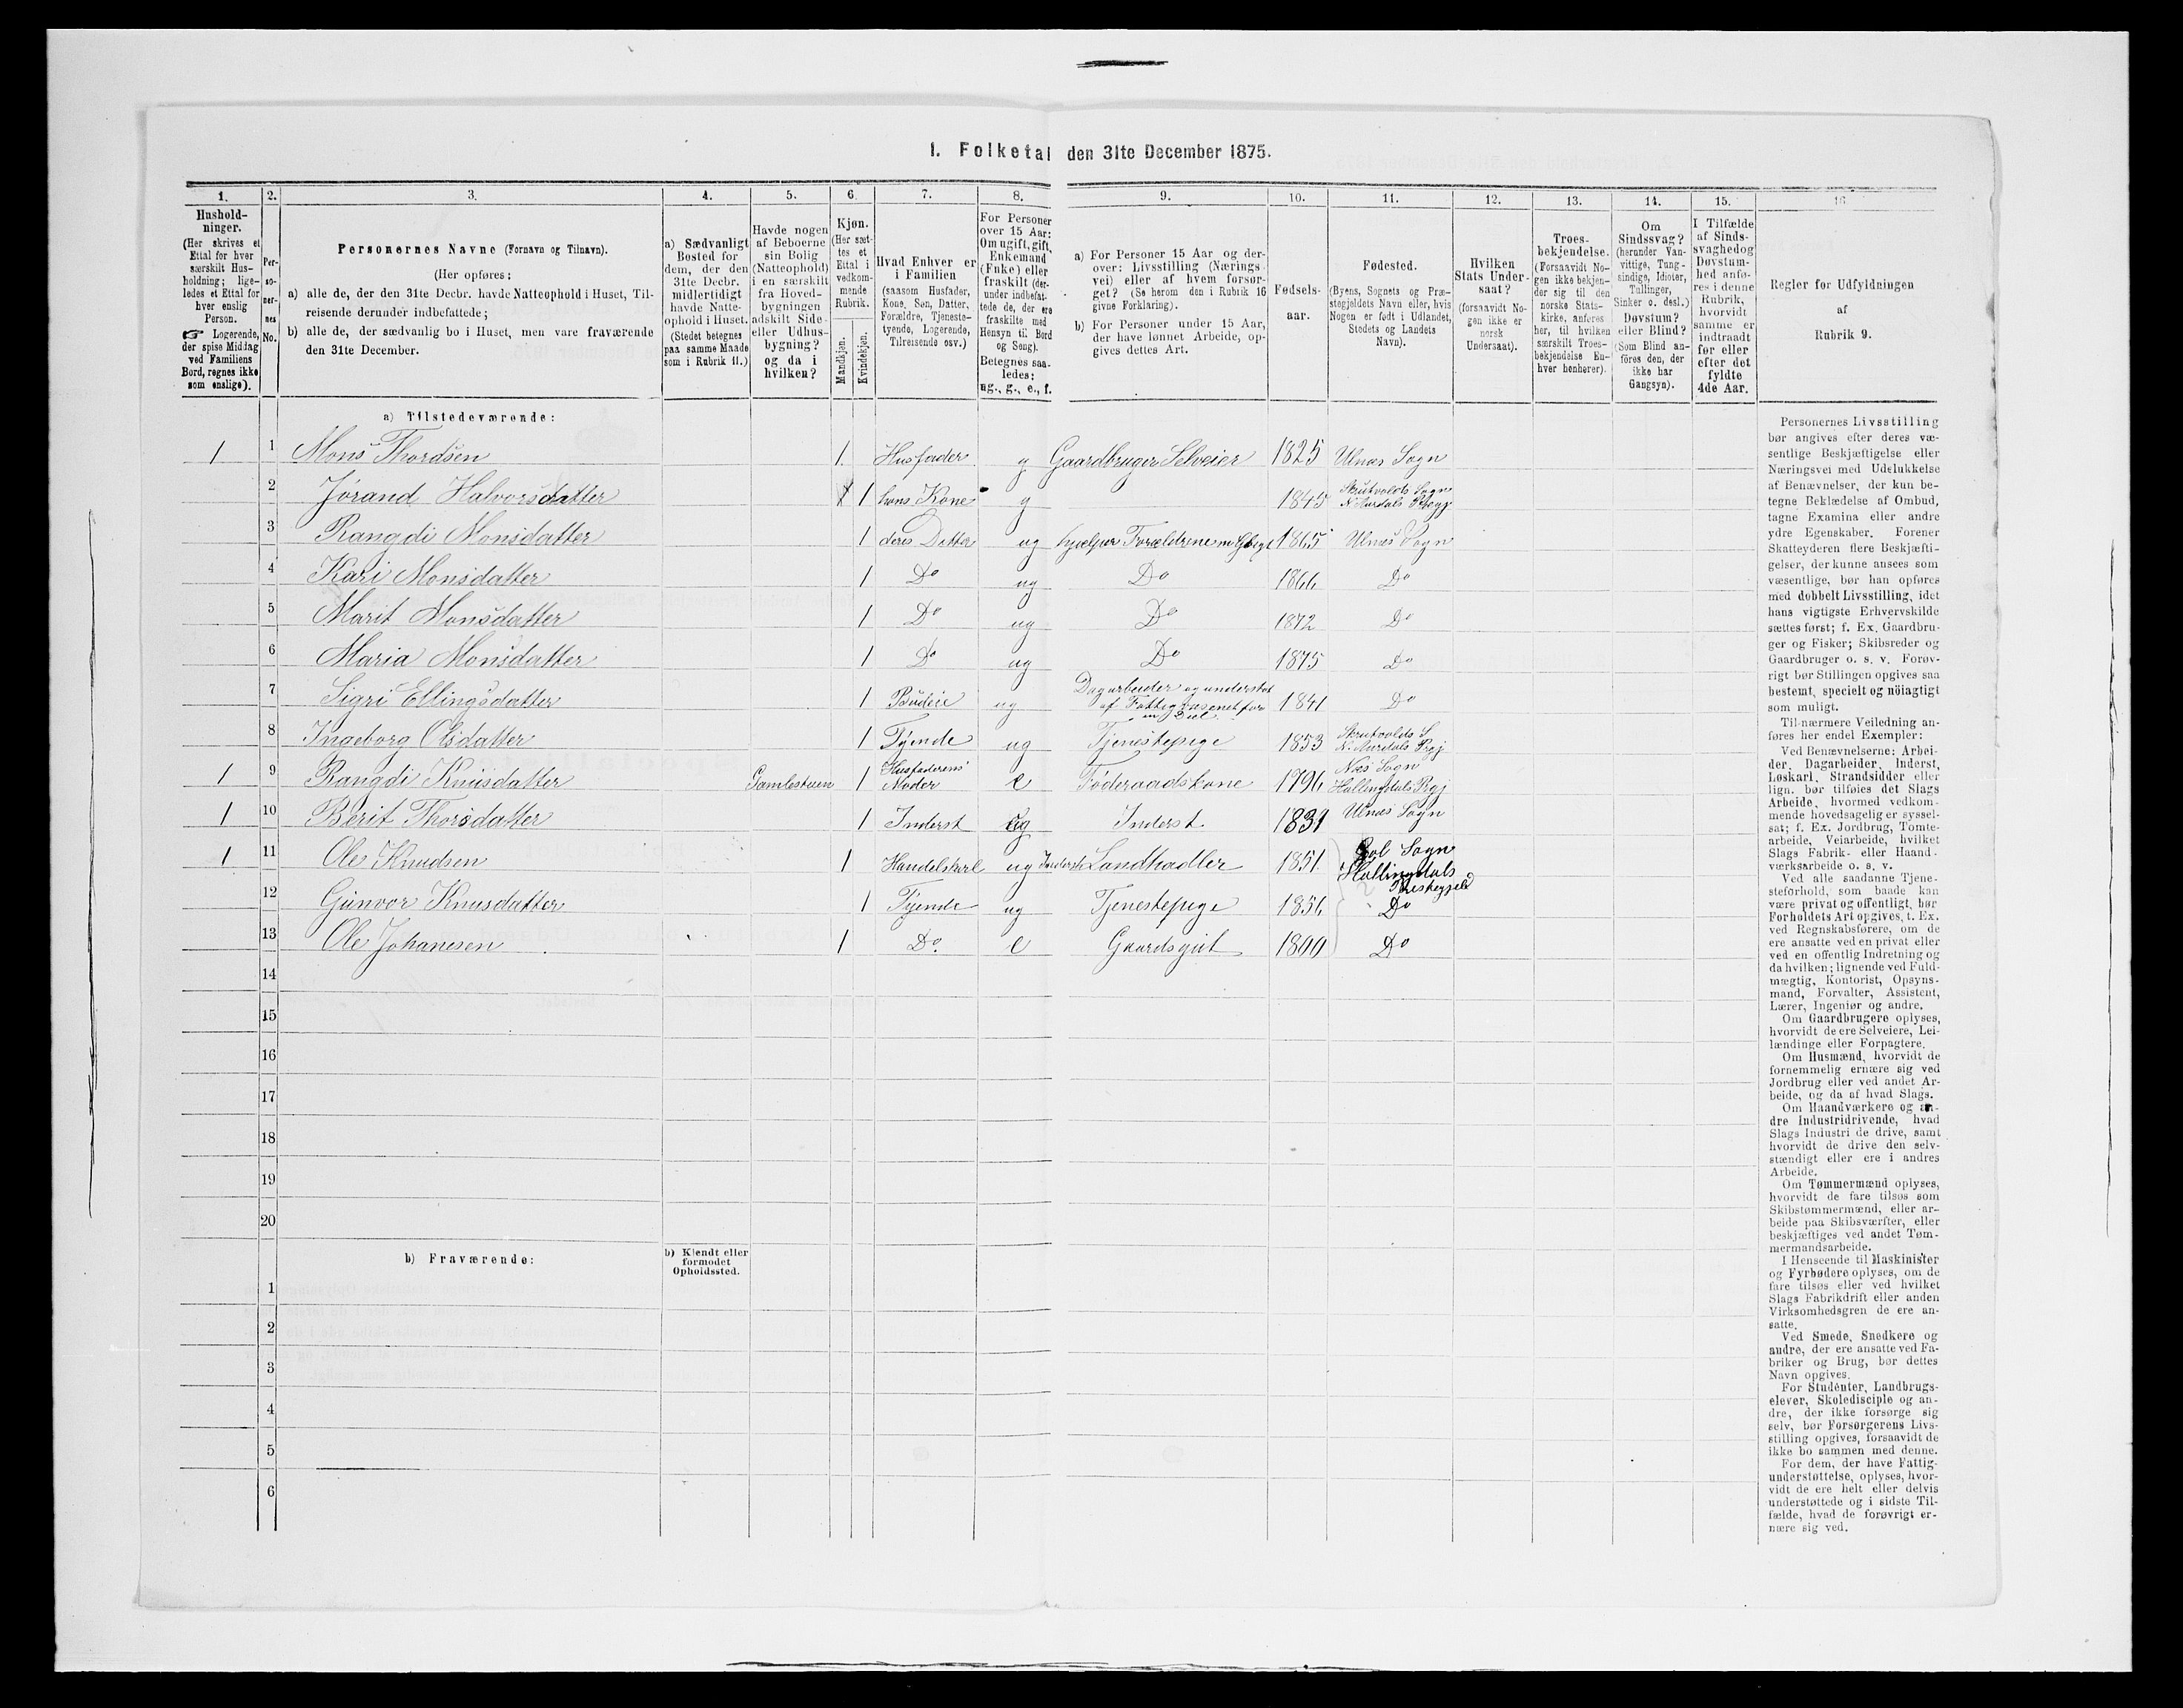 1. Folketal den 31te December 1875.
1. 2. 3. 4. 5. 6. 7. 8. 9. 10. 11. 12. 13. 14. 15. 16
Hushold-
ninger.
(Her skrives et
Ettal for hver
særskilt Hus-
holdning; lige-
ledes et Ettal for
hver enslig
Person.
☞ Logerende,
der spise Middag
ved Familiens
Bord, regnes ikke
som enslige).
Per-
so-
ner-
nes
No.
Personernes Navne (Fornavn og Tilnavn).
(Her opføres:
a) alle de, der den 31te Decbr. havde Natteophold i Huset, Til-
reisende derunder indbefattede;
b) alle de, der sædvanlig bo i Huset, men vare fraværende
den 31te December.
a) Sædvanligt
Bosted for
dem, der den
31te Decbr.
midlertidigt
havde Natte-
ophold i Huset.
(Stedet betegnes
paa samme Maade
som i Rubrik 11.)
Havde nogen
af Beboerne
sin Bolig
(Natteophold)
i en særskilt
fra Hoved-
bygningen
adskilt Side-
eller Udhus-
bygning?
og da i
hvilken?
Kjøn.
(Her sæt-
tes et
Ettal i
vedkom-
mende
Rubrik.
Mandkjøn.
Kvindekjøn.
Hvad Enhver er
i Familien
(saasom Husfader,
Kone, Søn, Datter,
Forældre, Tjeneste-
tyende, Logerende,
Tilreisende osv.)
For Personer
over 15 Aar:
Om ugift, gift,
Enkemand
(Enke) eller
fraskilt (der-
under indbefat-
tede de, der ere
fraskilte med
Hensyn til Bord
og Seng).
Betegnes saa-
ledes:
ug., g., e., f.
a) For Personer 15 Aar og der-
over: Livsstilling (Nærings-
vei) eller af hvem forsør-
get? (Se herom den i Rubrik 16
givne Forklaring).
b) For Personer under 15 Aar,
der have lønnet Arbeide, op-
gives dettes Art.
Fødsels-
aar.
Fødested.
(Byens, Sognets og Præ-
stegjeldets Navn eller, hvis
Nogen er født i Udlandet,
Stedets og Landets
Navn).
Hvilken
Stats Under-
saat?
(forsaavidt No-
gen ikke er
norsk
Undersaat).
Troes-
bekjendelse.
(Forsaavidt No-
gen ikke bekjen-
der sig til den
norske Stats-
kirke, anføres
her, til hvilken
særskilt Troes-
bekjendelse En-
hver henhører).
Om
Sindssvag?
(herunder Van-
vittige, Tung-
sindige, Idioter,
Tullinger,
Sinker o. desl.)
Døvstum?
eller Blind?
(Som Blind an-
føres den, der
ikke har
Gangsyn).
I Tilfælde
af Sinds-
svaghed og
Døvstum-
hed anfø-
res i denne
Rubrik,
hvorvidt
samme er
indtraadt
før eller
efter det
fyldte
4de Aar.
Regler for Udfyldningen
af
Rubrik 9.
a) Tilstedeværende:
1 1 Mons Thordsen 1. Husfader g Gaardbruger Selveier 1825 Ulnæs Sogn
2 Jørand Halvorsdatter 1 hans Kone g 1845 Skrutvolds Sogn N. Aurdals Prgj
3 Rangdi Monsdatter 1 deres Datter ug hjælper Forældrene 1865 Ulnæs Sogn
4 Kari Monsdatter 1 Do ug Do 1866 Do
5 Marit Monsdatter 1 Do ug Do 1872 Do
6 Maria Monsdatter 1 Do ug Do 1875 Do
7 Sigri Ellingsdatter 1 Budeie ug Dagarbeider og understøt af Fattigvæsenet for en Deel 1841 Do
8 Ingeborg Olsdatter 1 Tyende ug Tjenestepige 1853 Skrutvolds S N. Aurdals Prgj
1 9 Rangdi Knusdatter Gamlestuen 1 Husfaderens Moder e Føderaadskone 1796 Næs Sogn Hallingdals Prgj
1 10 Berit Thorsdatter 1 Inderst ug Inderst 1831 Ulnæs Sogn
1 11 Ole Knudsen 1 Handelskarl ug Inderst Landhadler 1851. Gol Sogn Hallingdals Prestegjeld
12 Gunvor Knusdatter 1 Tyende ug Tjenestepige 1856 Do
13 Ole Johanesen 1 Do. e Gaardsgut 1800 Do
14
15
16
17
18
19
20
b) Fraværende:
b) Kjendt eller
formodet
Opholdssted.
1
2
3
4
5
6
Personernes Livsstilling
bør angives efter deres væ-
sentlige Beskjæftigelse eller
Næringsvei med Udelukkelse
af Benævnelser, der kun be-
tegne Beklædelse af Ombud,
tagne Examina eller andre
ydre Egenskaber. Forener
Skatteyderen flere Beskjæfti-
gelser, der kunne ansees som
væsentlige, bør han opføres
med dobbelt Livsstilling, idet
hans vigtigste Erhvervskilde
sættes først; f. Ex. Gaardbru-
ger og Fisker; Skibsreder og
Gaardbruger o. s. v. Forøv-
rigt bør Stillingen opgives saa
bestemt, specielt og nöiagtigt
som muligt.
Til nærmere Veiledning an-
føres her endel Exempler:
Ved Benævnelserne: Arbei-
der, Dagarbeider, Inderst,
Løskarl, Strandsidder eller
lign. bør tilføies det Slags
Arbeide, hvormed vedkom-
mende hovedsagelig er syssel-
sat; f. Ex. Jordbrug, Tomte-
arbeide, Veiarbeide, hvilket
Slags Fabrik- eller Haand-
værksarbeide o. s. v.
Ved alle saadanne Tjene-
steforhold, som baade kan
være privat og offentligt, bør
Forholdets Art opgives, t. Ex.
ved Regnskabsførere, om de
ere ansatte ved en privat eller
ved en offentlig Indretning og
da hvilken; lignende ved Fuld-
mægtig, Kontorist, Opsyns-
mand, Forvalter, Assistent,
Lærer, Ingeniør og andre.
Om Gaardbrugere oplyses,
hvorvidt de ere Selveiere, Lei-
lændinge eller Forpagtere.
Om Husmænd, hvorvidt de
fornemmelig ernære sig ved
Jordbrug eller ved andet Ar-
beide, og da af hvad Slags.
Om Haandværkere og an-
dre Industridrivende, hvad
Slags Industri de drive, samt
hvorvidt de drive den selv-
stændigt eller ere i andres
Arbeide.
Om Tømmermænd oplyses,
hvorvidt de fare tilsøs som
Skibstømmermænd, eller ar-
beide paa Skibsværfter, eller
beskjæftiges ved andet Tøm-
mermandsarbeide.
I Henseende til Maskinister
og Fyrbødere oplyses, om de
fare tilsøs eller ved hvilket
Slags Fabrikdrift eller anden
Virksomhedsgren de ere an-
satte.
Ved Smede, Snedkere og
andre, der ere ansatte ved Fa-
briker og Brug, bør dettes
Navn opgives.
For Studenter, Landbrugs-
elever, Skoledisciple og an-
dre, der ikke forsørge sig
selv, bør Forsørgerens Livs-
stilling opgives, forsaavidt de
ikke bo sammen med denne.
For dem, der have Fattig-
understøttelse, oplyses, hvor-
vidt de ere helt eller delvis
understøttede og i sidste Til-
fælde, hvad de forøvrigt er-
nære sig ved.